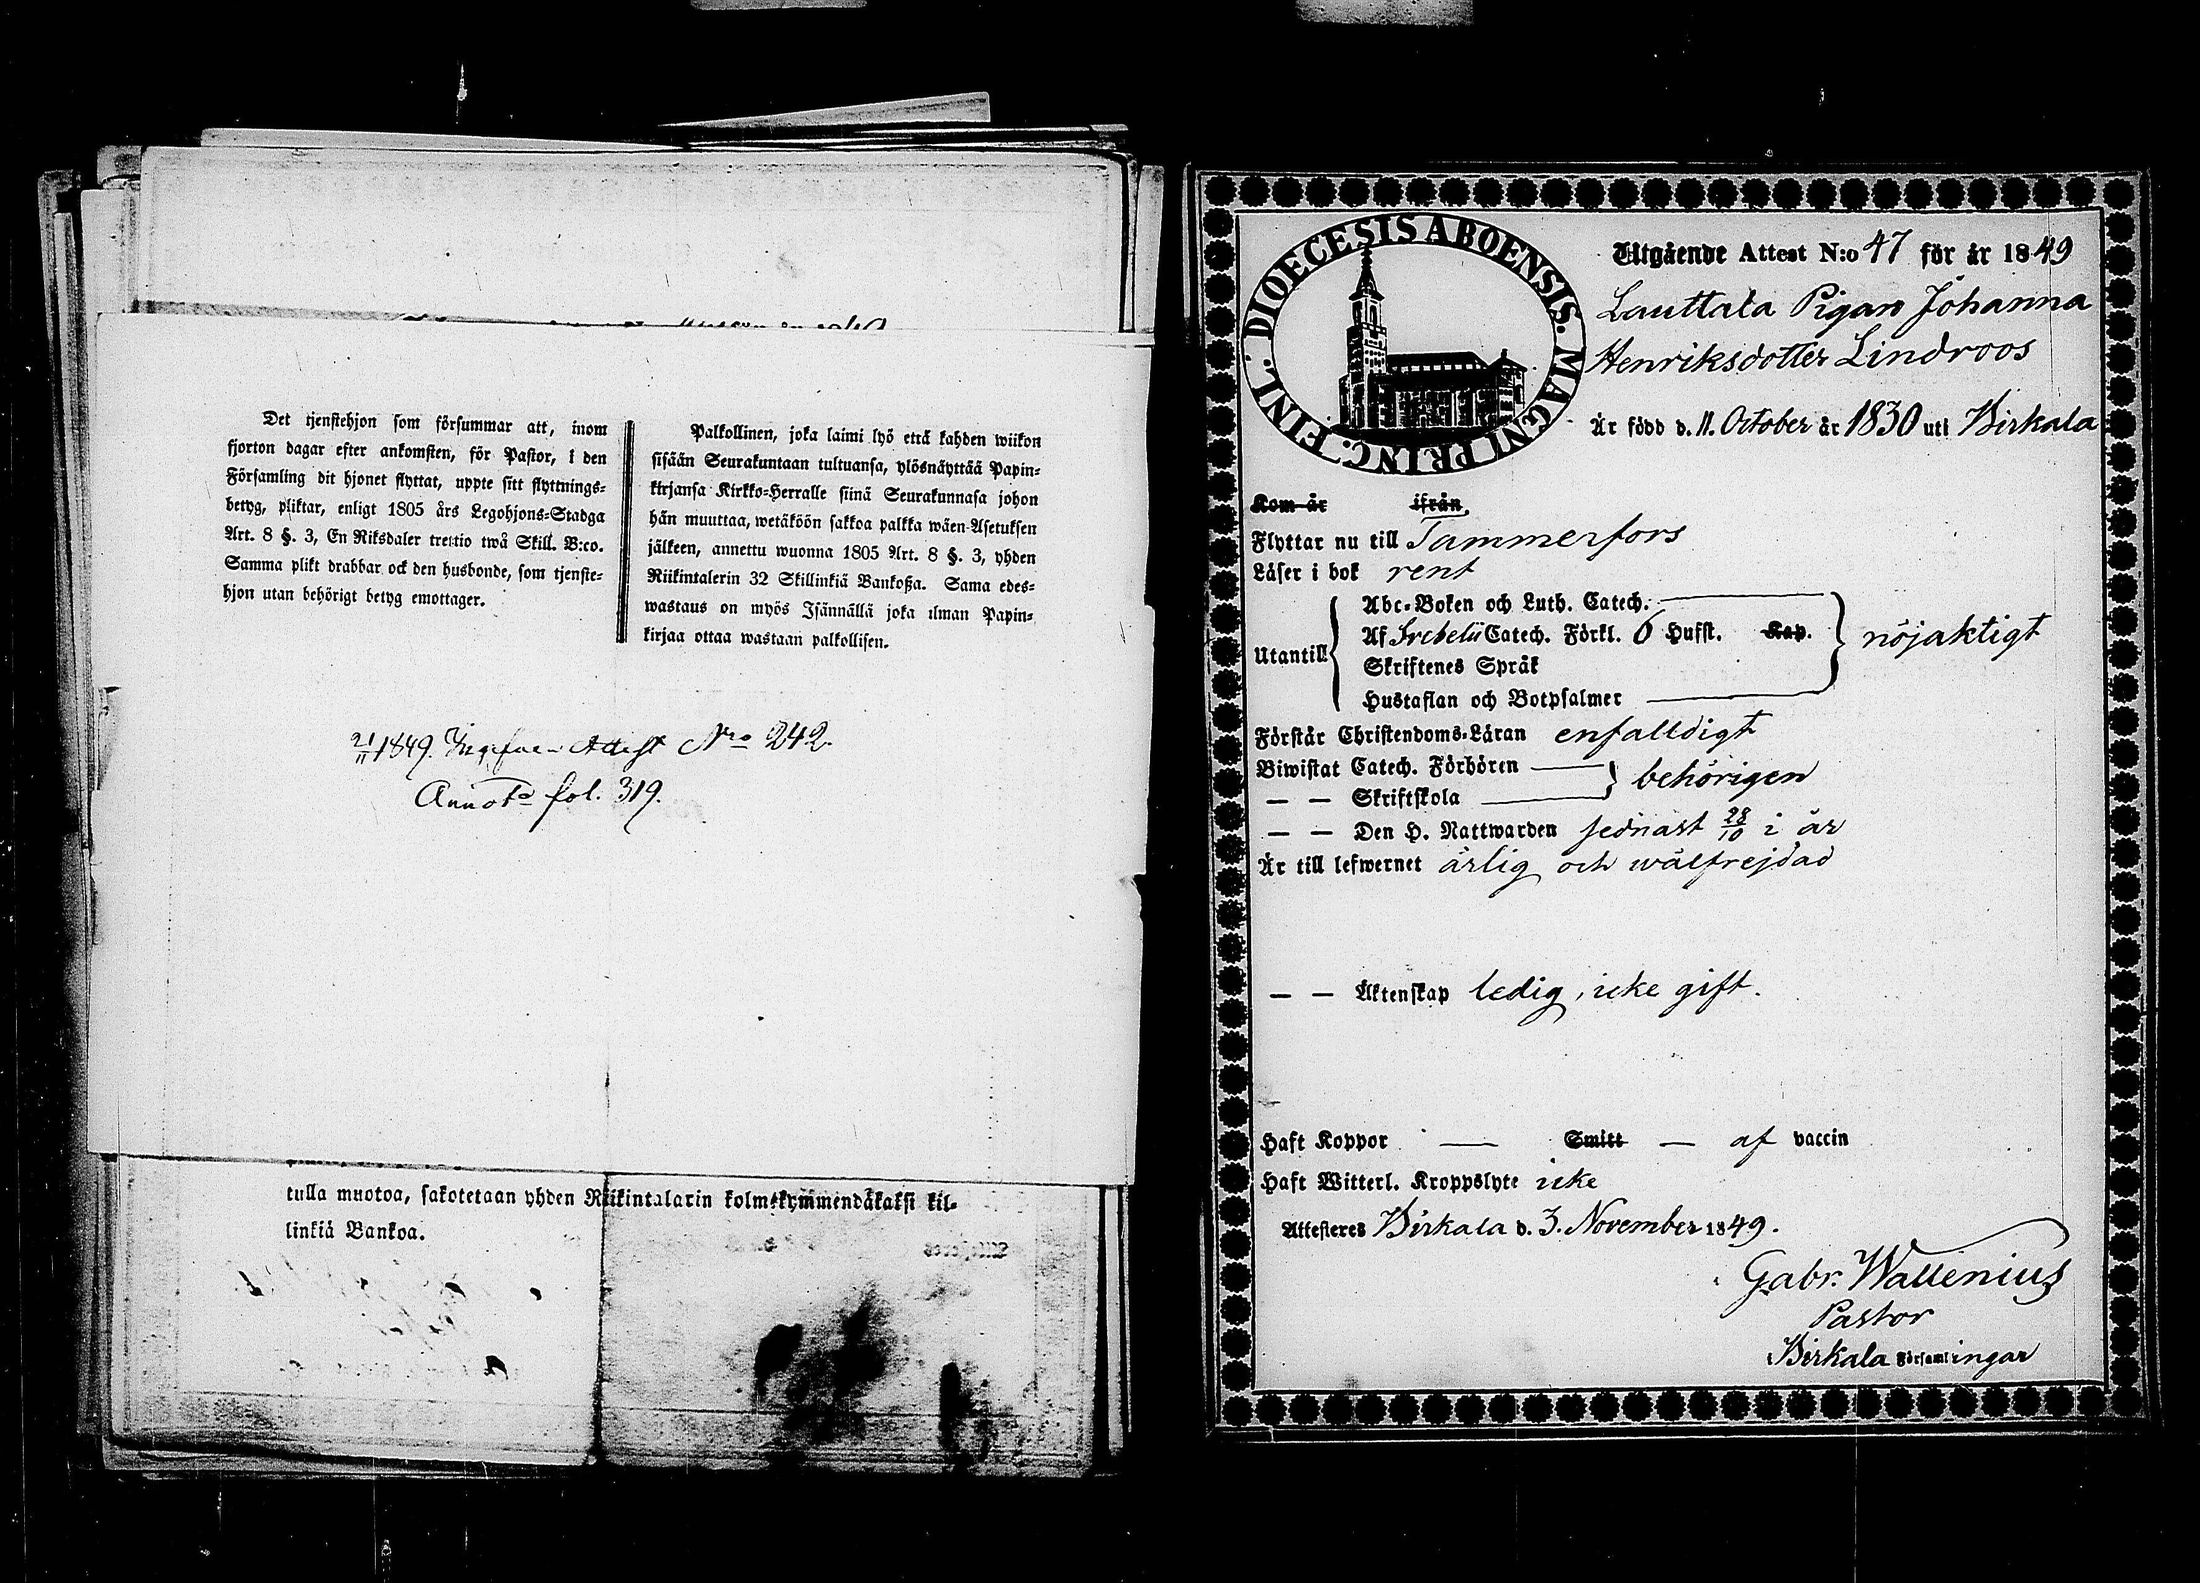 Det tjenstehjon som försummar att, inom
fjorton dagar efter ankomsten, för Pastor, i den
Församling dit hjonet flyttat, uppte sitt flyttnings-
betyg, pliktar, enligt 1805 års Legohjons-Stadga
Art. 8 §. 3, En Riksdaler trettio twå Skill. B:co.
Samma plikt drabbar ock den husbonde, som tjenste-
hjon utan behörigt betyg emottager.
Palkollinen, joka laimi lyö että kahden wiikon
sisään Seurakuntaan tultuansa, ylösnäyttää Papin-
kirjansa Kirkko-Herralle siinä Seurakunnasa johon
hän muuttaa, wetäköön sakkoa palkka wäen-Asetuksen
jälkeen, annettu wuonna 1805 Art. 8 §. 3, yhden
Riikintalerin 32 Skillinkiä Bankoßa. Sama edes-
wastaus on myös Isännällä joka ilman Papin-
kirjaa ottaa wastaan palkollisen.
21/11 1849. Attest Nro 242.
Annot. fol. 319.
tulla muotoa, sakotetaan yhden Riikintalarin kolmekymmendäkaksi kil-
linkiä Bankoa.
DIOECESIS ABOENSIS. MAGNI PRINC. FINL.
Utgående Attest N:o 47 för år 1849
Lauttala Pigan Johanna
Henriksdotter Lindroos
Är född d. 11. October år 1830 uti Birkala
Kom år ifrån
Flyttar nu till Tammerfors
Läser i bok rent
Utantill
Abc-Boken och Luth. Catech.
Af Svebelii Catech. Förkl. 6 Hufst. Kap.
Skriftenes Språk
Hustaflan och Botpsalmer
nöjaktigt
Förstår Christendoms-Läran enfalldigt
Biwistat Catech. Förhören
— — Skriftskola
behörigen
— — Den H. Nattwarden sednast 28/10 i år
Är till lefwernet ärlig och wälfrejdad
— — Äktenskap ledig, icke gift.
Haft Koppor — Smitt — af vaccin
Haft Witterl. Kroppslyte icke
Attesteres Birkala d. 3. November 1849.
Gabr. Wallenius
Pastor
Birkala Församlingar